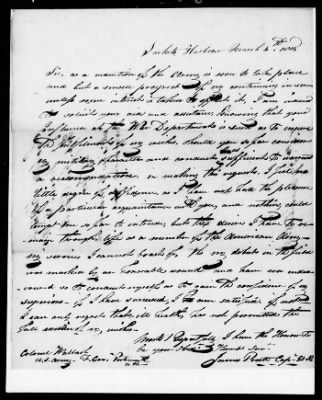 Sacketts Harbour March 4th 1815
Sir, as a reduction of the Army is soon to take place
and but a small prospect of my continuing in same
unless some interest is taken to effect it, I am induced
to solicit your aid and assistance knowing that your
Influence at the War Department is such as to ensure
the fulfilment of my wishes, should you so far consider
my military character and conduct sufficient to warrant
a recommendation in making the request. I feel no
little degree of diffidence, as I have not had the pleasure
of a particular acquaintance with you, and nothing could
tempt me so far to intrude, but the desire I have to
through life as a member of the American Army
my services I cannot boast of, tho my debut in the field
was marked by an honorable wound and have ever endea-
vored so to conduct myself as to gain the confidence of my
superiors. If I have succeeded, I am satisfied, if not
I can only regret that ill health, has not permitted the
full exertion of my wishes.
Most Respectfully I have the Honor to
be your Humb Serv
James Capt
Colonel Wallach
U.S. Army